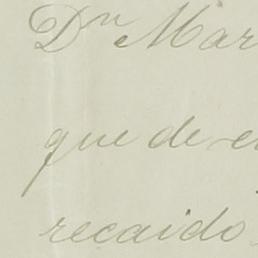 Dn Mar
que de e
recaido